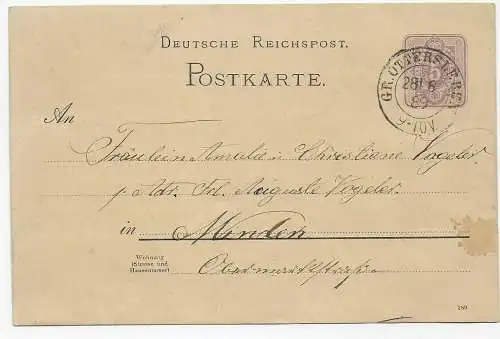 DEUTSCHE REICHSPOST.
POSTKARTE.
GR. OTTERSLEBEN
28 6
89
9-10V
An
Fräulein Amalie u. Christiene Vogeler.
p. Adr. Frl. Auguste Vogeler.
in Minden
Wohnung
(Strasse und
Hausnummer)
Obermarktstraße
189